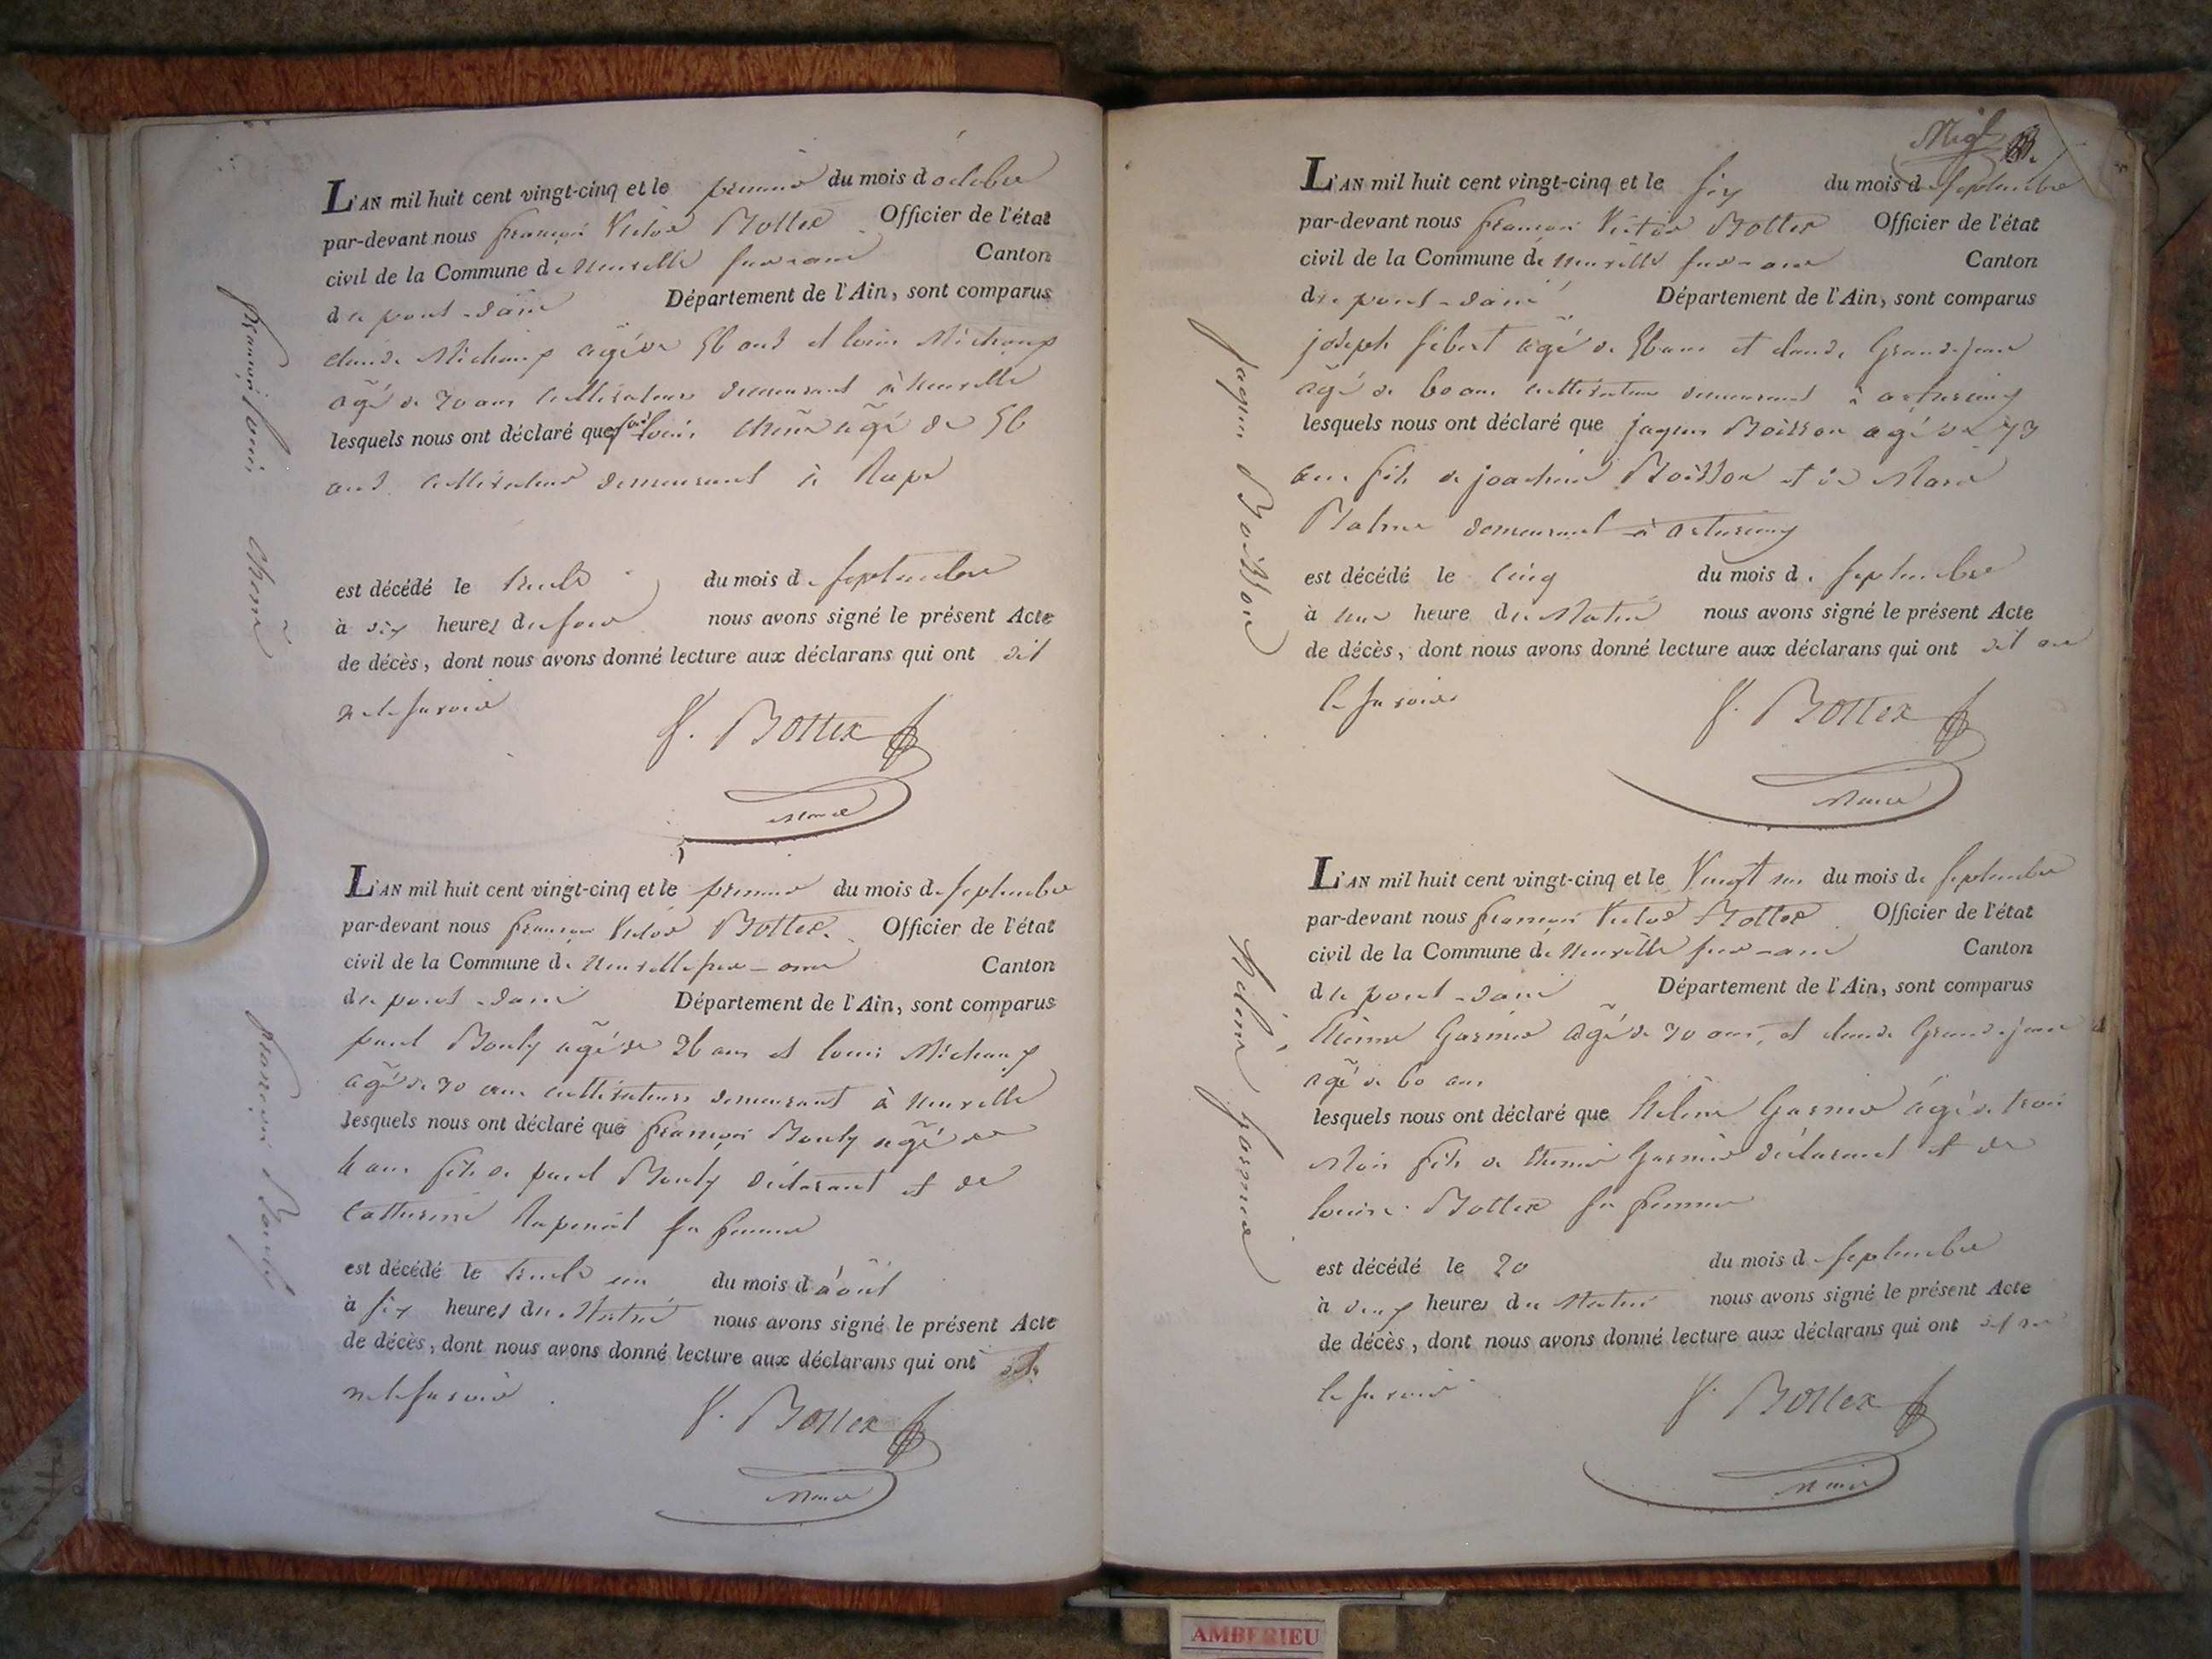 L'AN mil huit cent vingt-cinq et le premier du mois d octobre
par-devant nous françois Victor Bottex Officier de l'état
civil de la Commune de Neuville sur-ain Canton
de pont-dain Département de l'Ain, sont comparus
claude Michaux agé de 56 ans et louis Michaux
agé de 70 ans cultivateurs demeurant à Neuville
lesquels nous ont déclaré que louis agé de 56
ans cultivateur demeurant à
est décédé le trente du mois de septembre
à dix heures du soir nous avons signé le présent Acte
de décès, dont nous avons donné lecture aux déclarans qui ont dit
ne le savoir
f. Bottex
Maire
françois louis
L'AN mil huit cent vingt-cinq et le premier du mois de septembre
par-devant nous françois Victor Bottex Officier de l'état
civil de la Commune de Neuville sur-ain Canton
de pont-dain Département de l'Ain, sont comparus
paul Bouly agé de 26 ans et louis Michaux
agé de 70 ans cultivateurs demeurant à Neuville
lesquels nous ont déclaré que françois Bouly agé de
ans fils de paul Bouly déclarant et de
Catherine sa femme
est décédé le trente un du mois d août
à six heures du Matin nous avons signé le présent Acte
de décès, dont nous avons donné lecture aux déclarans qui ont dit
ne le savoir
f. Bottex
Maire
françois Bouly
L'AN mil huit cent vingt-cinq et le six du mois de septembre
par-devant nous françois Victor Bottex Officier de l'état
civil de la Commune de Neuville sur-ain Canton
de pont-dain Département de l'Ain, sont comparus
joseph sibert agé de 56 ans et claude Grandjean
agé de 60 ans cultivateurs demeurant à
lesquels nous ont déclaré que jaques Boisson agé de 73
ans fils de joachim Boisson et de Marie
Balme demeurant à
est décédé le cinq du mois de septembre
à une heure du Matin nous avons signé le présent Acte
de décès, dont nous avons donné lecture aux déclarans qui ont dit ne
le savoir
f. Bottex
Maire
jaques Boisson
L'AN mil huit cent vingt-cinq et le Vingt un du mois de septembre
par-devant nous françois Victor Bottex Officier de l'état
civil de la Commune de Neuville sur-ain Canton
de pont-dain Département de l'Ain, sont comparus
Etienne Garnier agé de 30 ans, et claude Grandjean
agé de 60 ans
lesquels nous ont déclaré que hélène Garnier agé de trois
Mois fils de Etienne Garnier déclarant et de
louise Bottex sa femme
est décédé le 20 du mois de septembre
à deux heures du Matin nous avons signé le présent Acte
de décès, dont nous avons donné lecture aux déclarans qui ont dit ne
le savoir
f. Bottex
Maire
hélène garnier
AMBERIEU